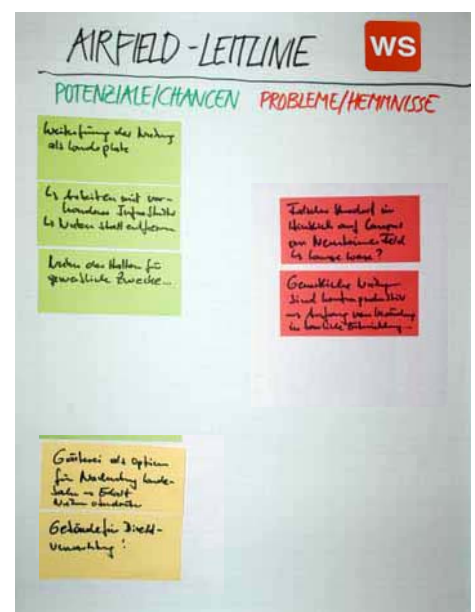 AIRFIELD-LEITLINIE
WS
POTENZIALE/CHANCEN
PROBLEME/HEMMNISSE
Weiterführung der Nutzung
als Landeplatz
↳ Arbeiten mit vor-
handener Infrastruktur
↳ Nutzen statt entfernen
Nutzen der Hallen für
gewerbliche Zwecke...
Falscher Standort im
Hinblick auf Campus
am Neuenheimer Feld
↳ lange Wege?
Gewerbliche Nutzungen
sind kontraproduktiv
Anfang von
Gärtnerei als Option
für Nachnutzung Lande-
bahn
Gelände für Direkt-
vermarktung!